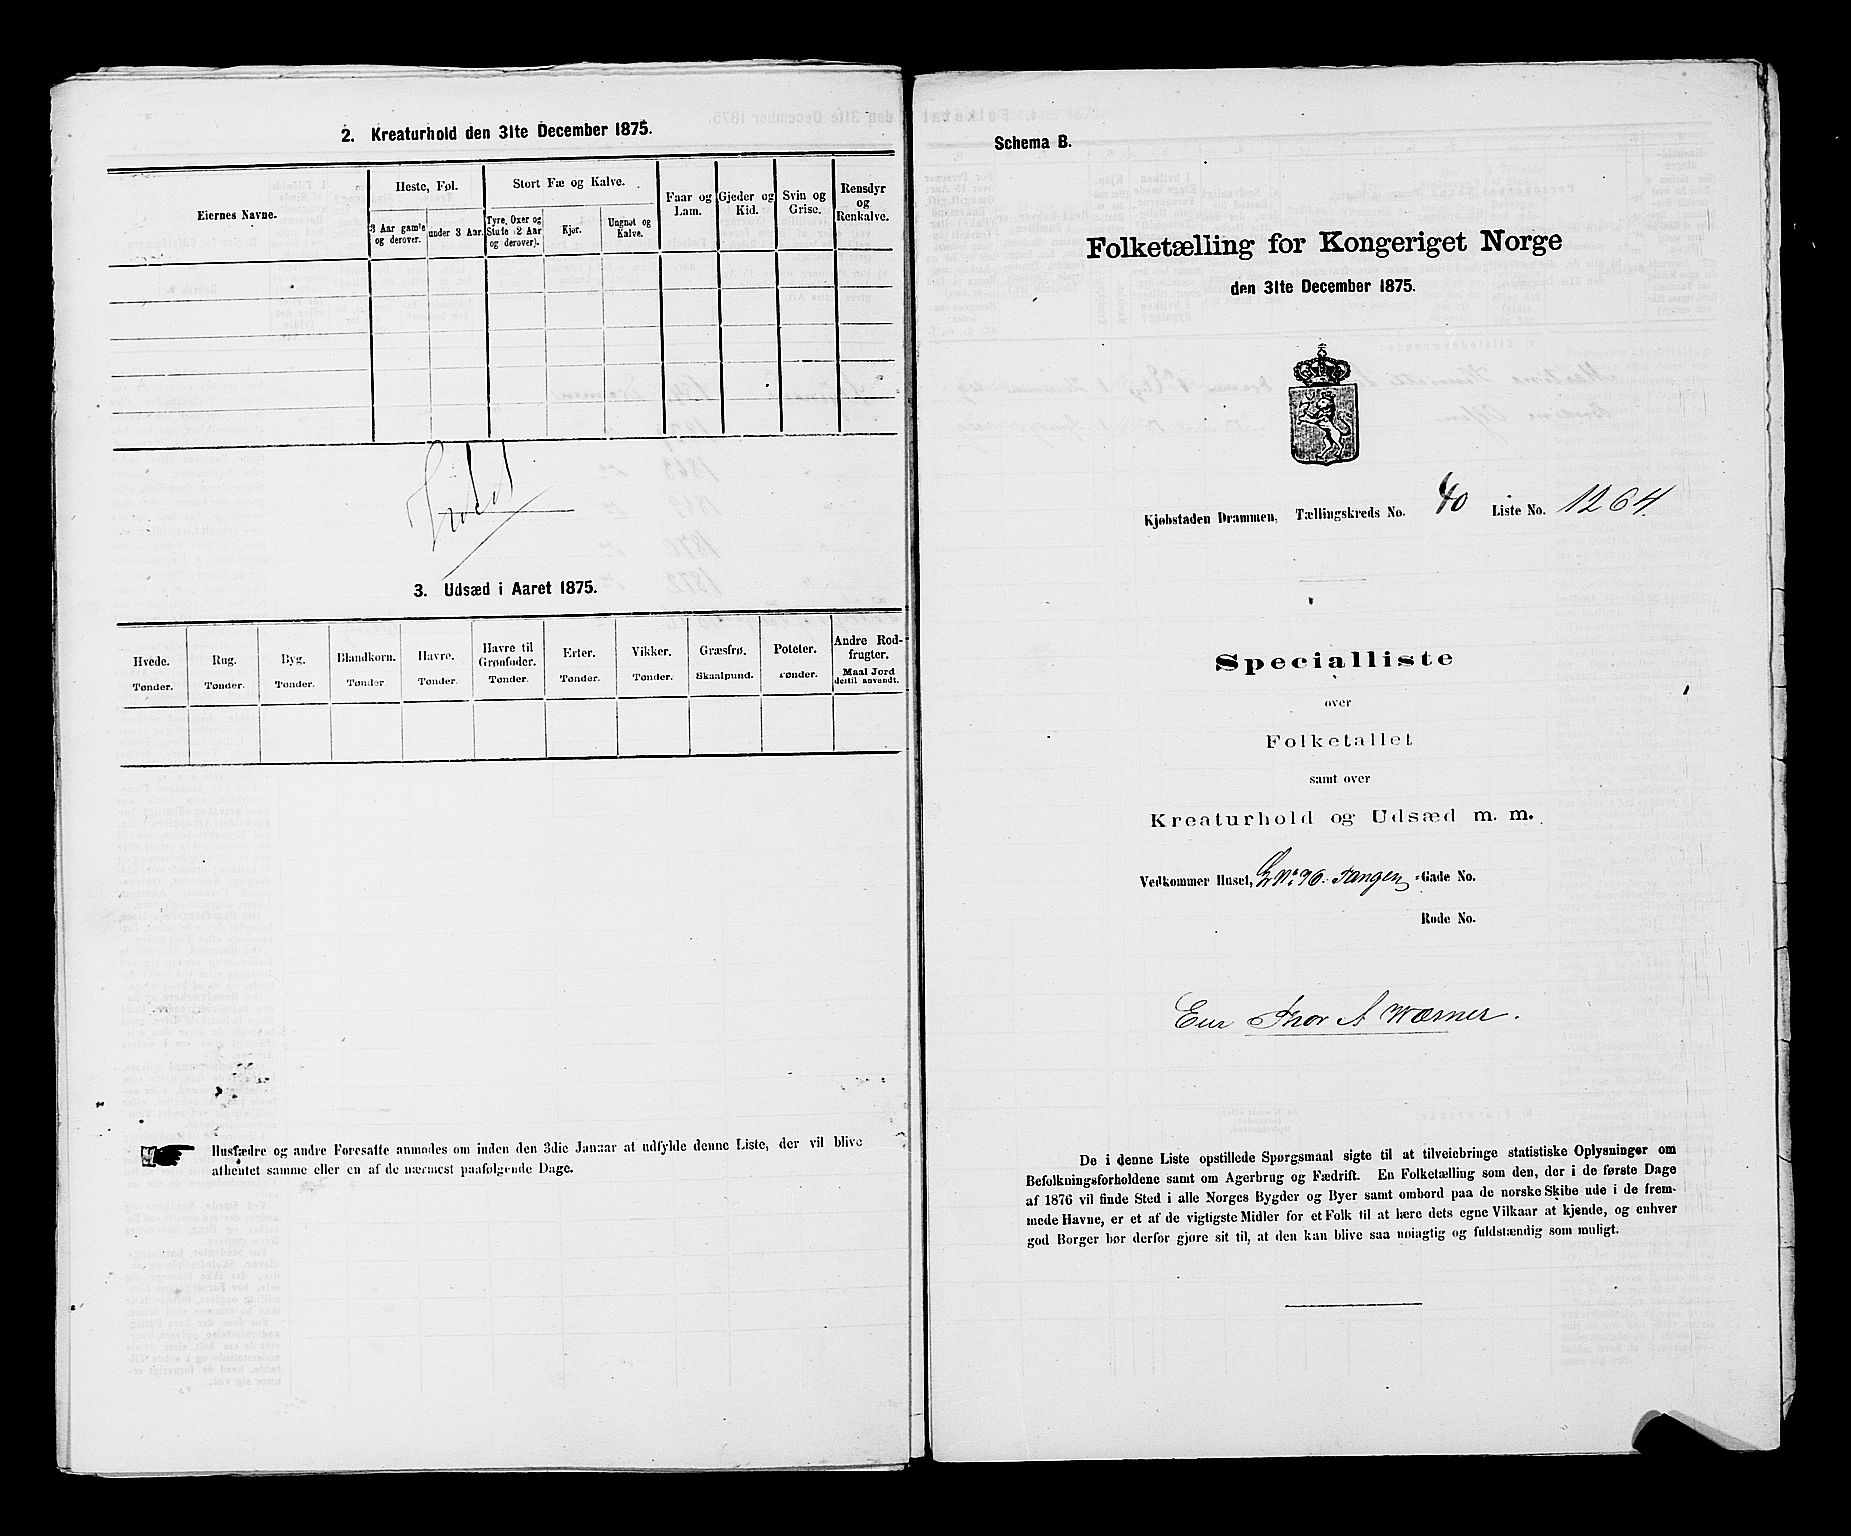 2. Kreaturhold den 31te December 1875.
Eiernes Navne.
Heste, Føl.
3 Aar gamle og derover.
under 3 Aar.
Stort Fæ og Kalve.
Tyre, Oxer og Stute (2 Aar og derover).
Kjør.
Ungnøt og Kalve.
Faar og Lam.
Gjeder og Kid.
Svin og Grise.
Rensdyr og Renkalve.
3. Udsæd i Aaret 1875.
Hvede. Tønder.
Rug. Tønder.
Byg. Tønder.
Blandkorn. Tønder
Havre. Tønder.
Havre til Grønfoder. Tønder.
Erter. Tønder.
Vikker. Tønder.
Græsfrø. Skaalpund.
Poteter. Tønder.
Andre Rodfrugter. Maal Jord dertil anvendt.
Husfædre og andre Foresatte anmodes om inden den 3die Januar at udfylde denne Liste, der vil blive
afhentet samme eller en af de nærmest paafølgende Dage.
Schema B.
Folketælling for Kongeriget Norge
den 31te December 1875.
Kjøbstaden Drammen, Tællingskreds No. 40 Liste No. 1264.
Specialliste
over
Folketallet
samt over
Kreaturhold og Udsæd m. m.
Vedkommer Huset, No 96. Tangen -Gade No.
Rode No.
Eier Thor A Wærner.
De i denne Liste opstillede Spørgsmaal sigte til at tilveiebringe statistiske Oplysninger om
Befolkningsforholdene samt om Agerbrug og Fædrift. En Folketælling som den, der i de første Dage
af 1876 vil finde Sted i alle Norges Bygder og Byer samt ombord paa de norske Skibe ude i de frem-
mede Havne, er et af de vigtigste Midler for et Folk til at lære dets egne Vilkaar at kjende, og enhver
god Borger bør derfor gjøre sit til, at den kan blive saa nøiagtig og fuldstændig som muligt.